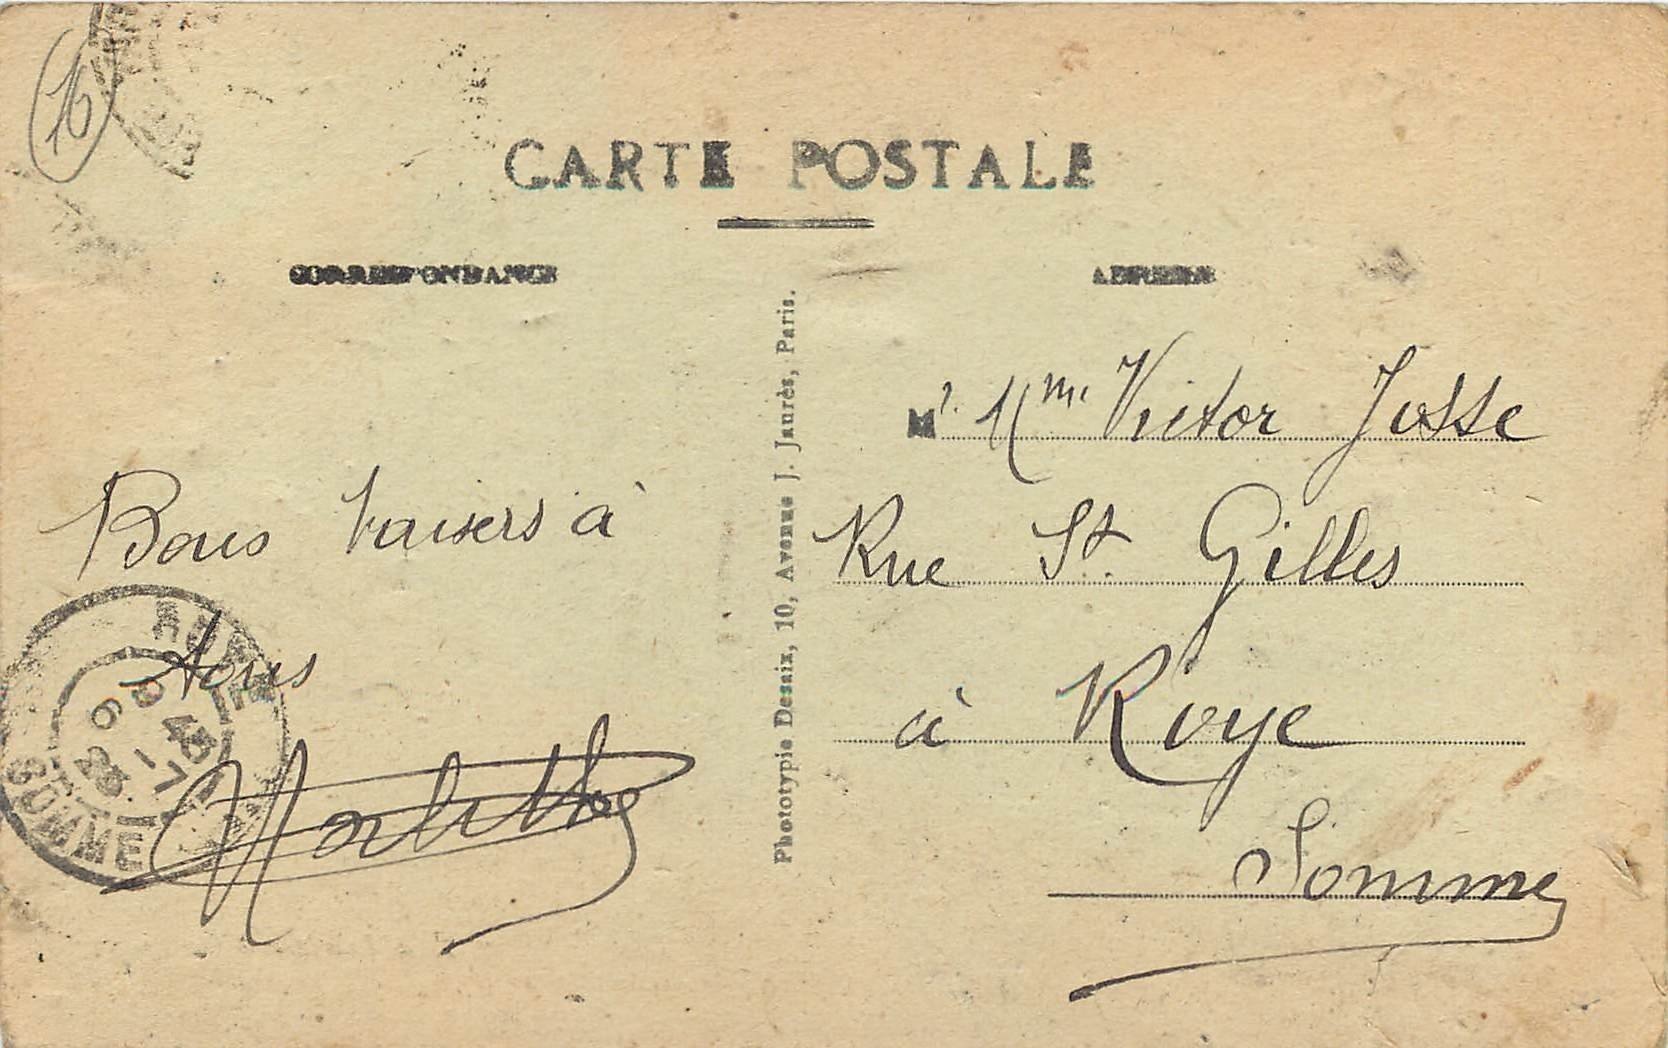 16
CARTE POSTALE
CORRESPONDANCE
ADRESSE
Bons baisers à
tous
Photototypie Desaix, 10, Avenue J. Jaurès, Paris.
Mr. Mme Victor Josse
Rue St. Gilles
à Roye
Somme
ROYE
9 45
6 -7
SOMME